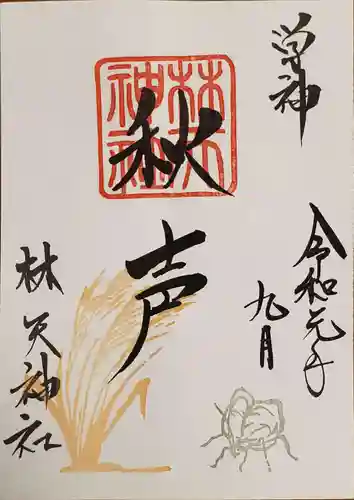 学神
令和元年
九月
秋声
林天神社
林天神社